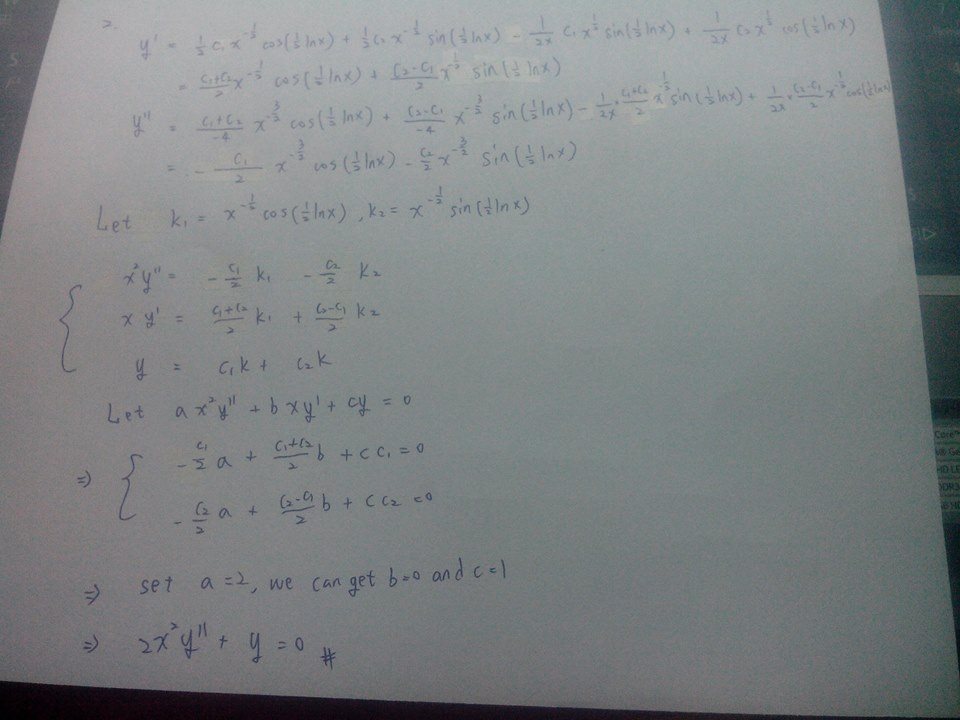 2.
y' = 1/2 c₁ x^(-1/2) cos(1/2 lnx) + 1/2 c₂ x^(-1/2) sin(1/2 lnx) - 1/(2x) c₁ x^(1/2) sin(1/2 lnx) + 1/(2x) c₂ x^(1/2) cos(1/2 lnx)
= (c₁+c₂)/2 x^(-1/2) cos(1/2 lnx) + (c₂-c₁)/2 x^(-1/2) sin(1/2 lnx)
y'' = (c₁+c₂)/(-4) x^(-3/2) cos(1/2 lnx) + (c₂-c₁)/(-4) x^(-3/2) sin(1/2 lnx) - 1/(2x) × (c₁+c₂)/2 x^(-1/2) sin(1/2 lnx) + 1/(2x) × (c₂-c₁)/2 x^(-1/2) cos(1/2 lnx)
= - c₁/2 x^(-3/2) cos(1/2 lnx) - c₂/2 x^(-3/2) sin(1/2 lnx)
Let k₁ = x^(-1/2) cos(1/2 lnx), k₂ = x^(-1/2) sin(1/2 lnx)
{ x²y'' = - c₁/2 k₁ - c₂/2 k₂
x y' = (c₁+c₂)/2 k₁ + (c₂-c₁)/2 k₂
y = c₁k + c₂k
Let a x²y'' + b xy' + cy = 0
⇒ { - c₁/2 a + (c₁+c₂)/2 b + c c₁ = 0
- c₂/2 a + (c₂-c₁)/2 b + c c₂ = 0
⇒ set a = 2, we can get b=0 and c=1
⇒ 2x²y'' + y = 0 #
Core™